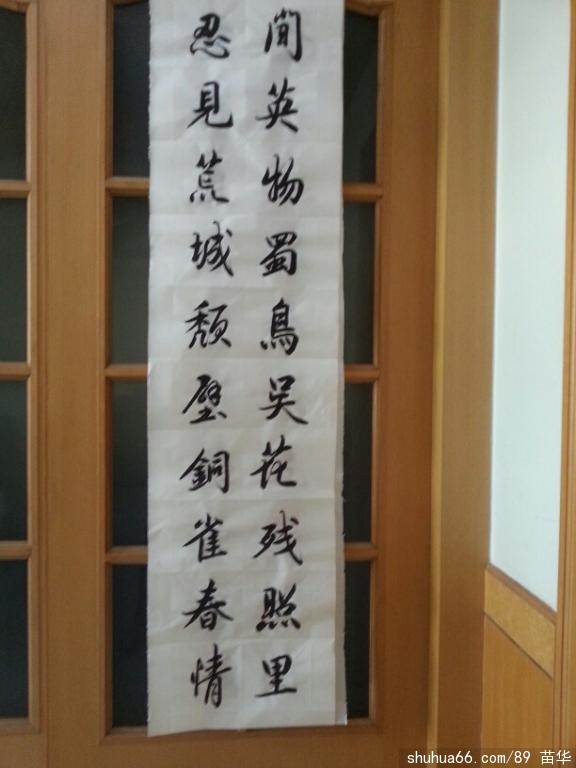 间英物蜀鳥吴花残照里
忍見荒城頽壁銅雀春情
shuhua66.com/89 苗华